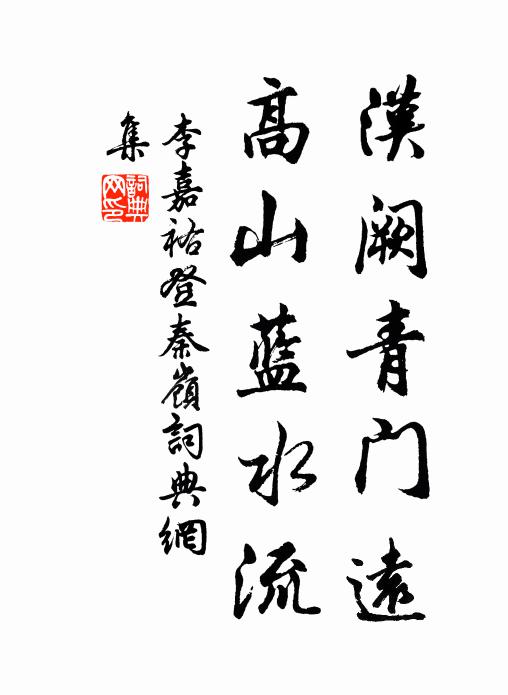 漢闕青門遠
高山藍水流
李嘉祐登秦嶺詞典網
集
詞典
网印